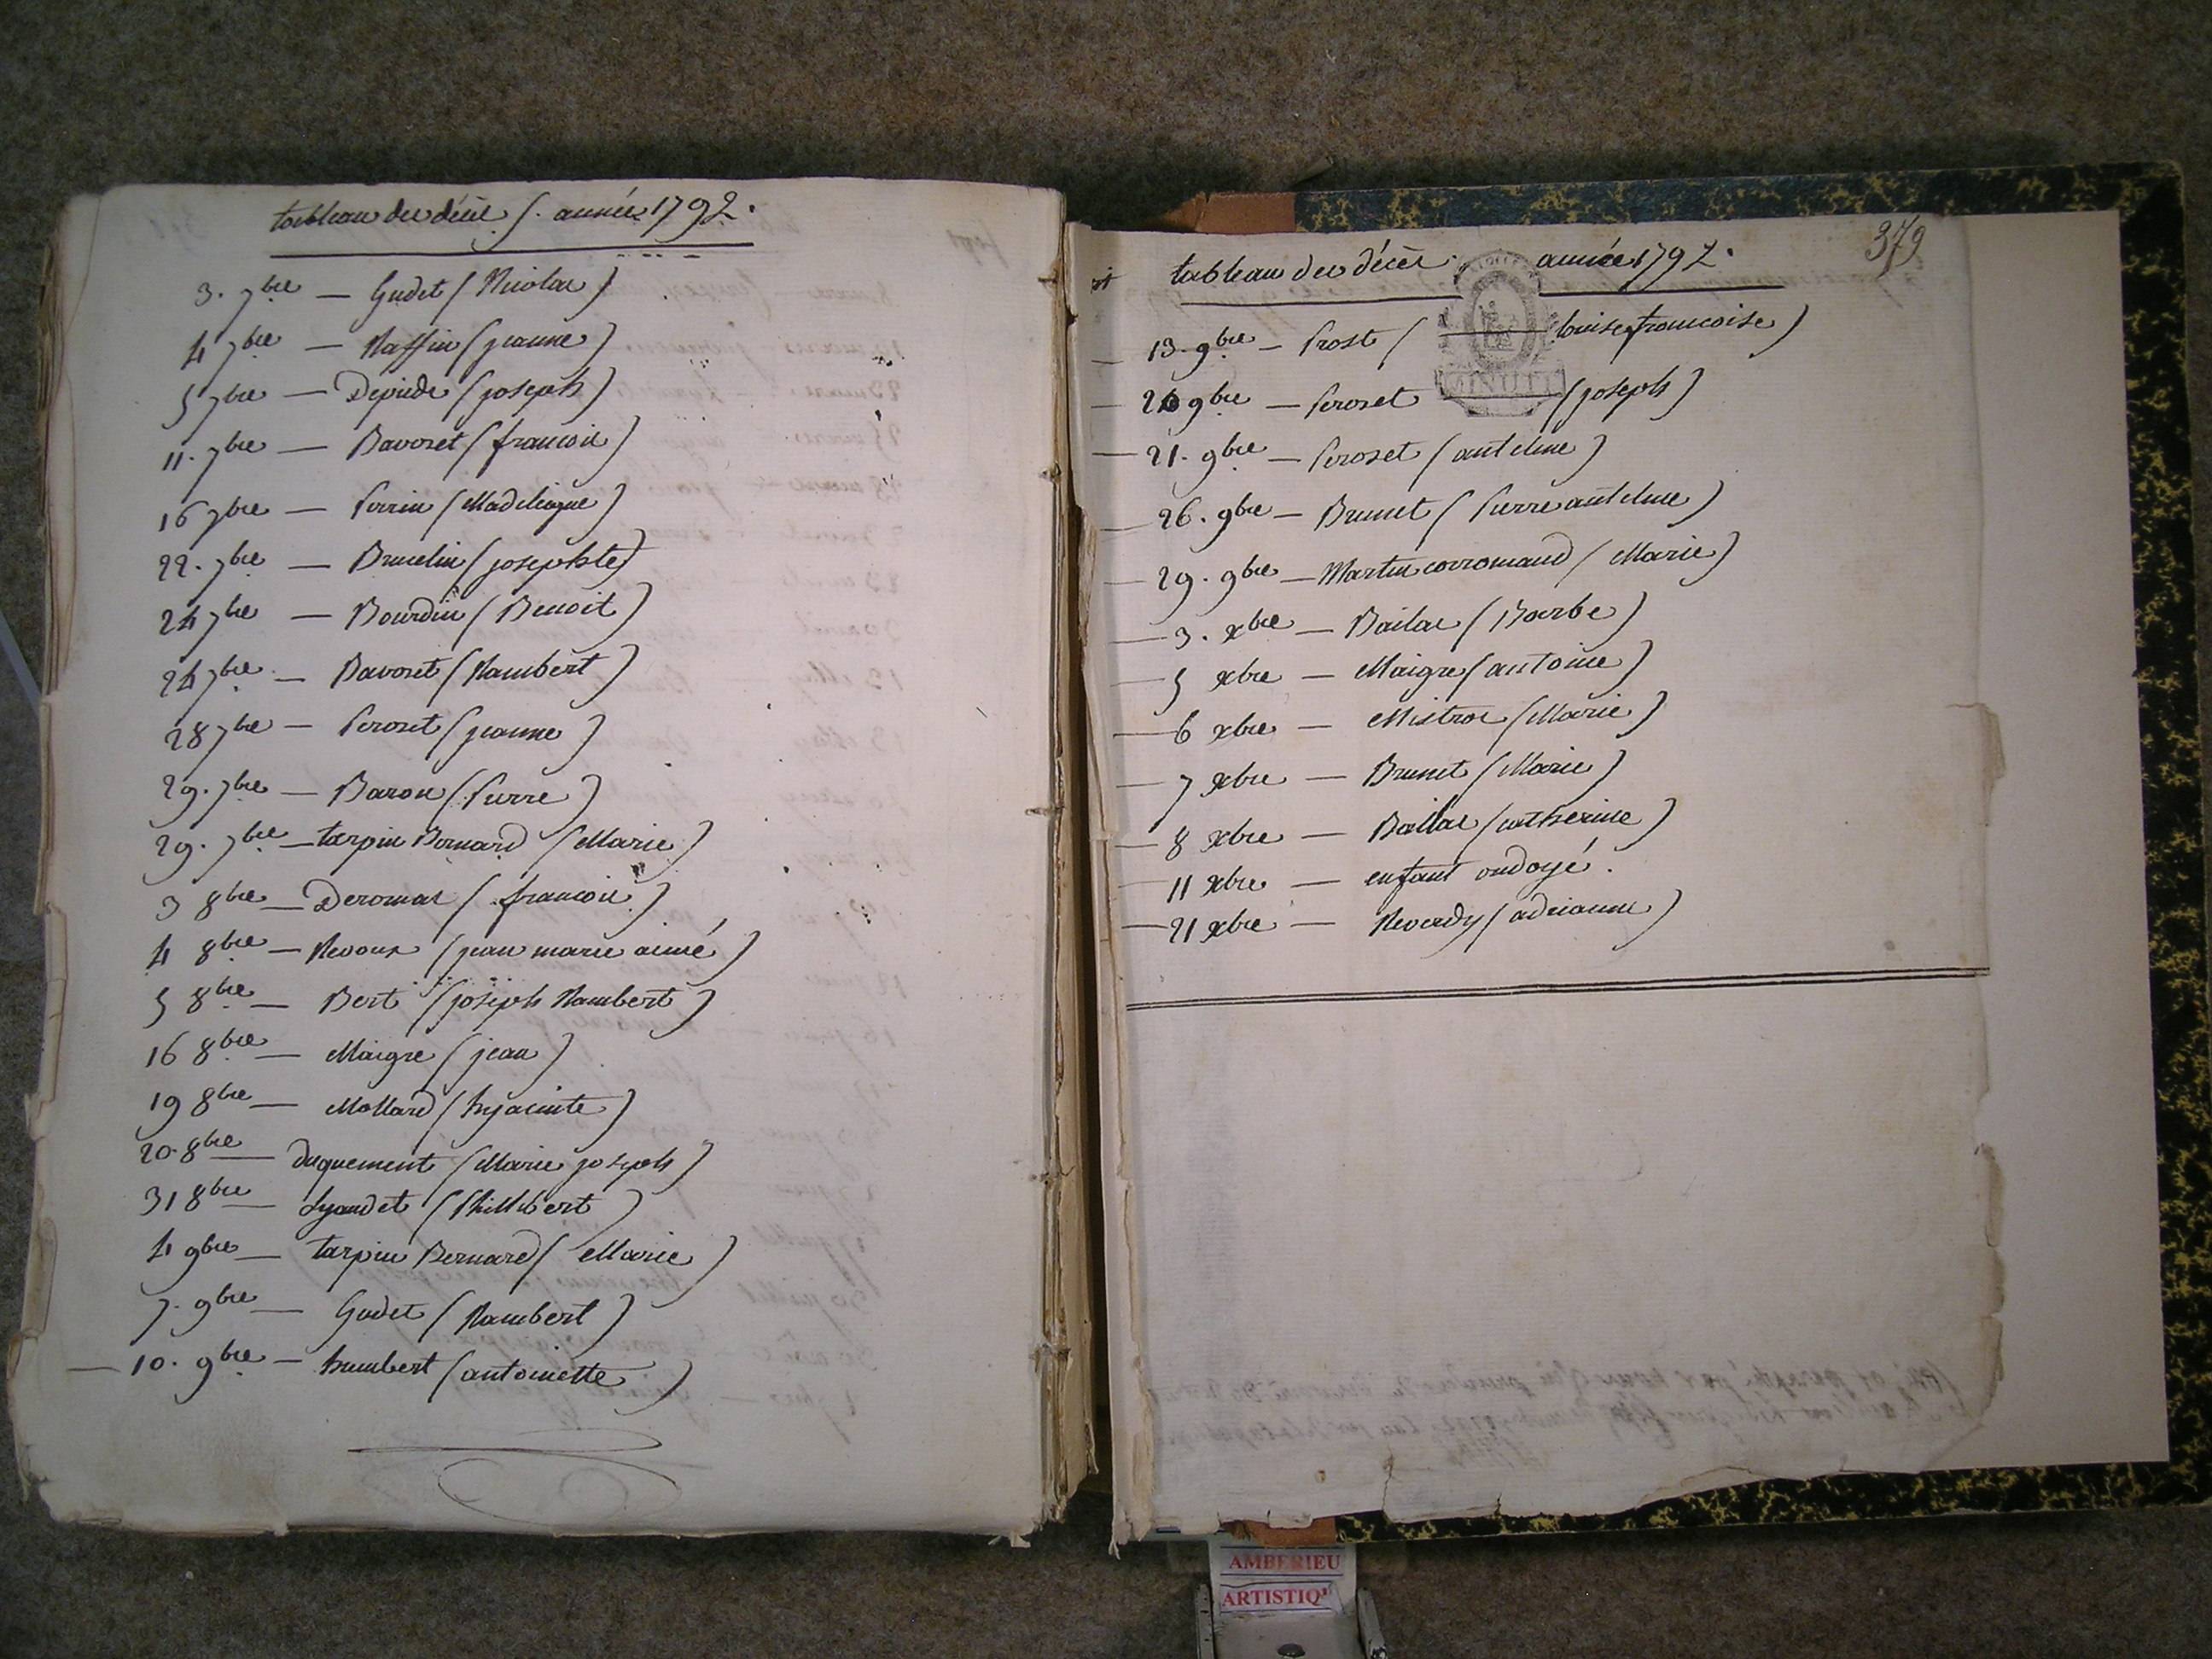 tableau des décès . année 1792.
3. 7bre — Gudet (Nicolas)
4 7bre — Raffin (jeanne)
5 7bre — Depride (joseph)
11. 7bre — Bavozet (francois)
16 7bre — Perrin (Madelaigne)
22. 7bre — Brucelin (josephte)
24 7bre — Bourdin (Benoit)
24 7bre — Bavozet (Rambert)
28 7bre — Perozet (jeanne)
29. 7bre — Baron (Pierre)
29. 7bre — tarpin Bernard (Marie)
3 8bre — Deromas (francois)
4 8bre — Revoux (jean marie aimé)
5 8bre — Bert (joseph Rambert)
16 8bre — Maigre (jean)
19 8bre — Mollard (hyacinte)
20. 8bre — duquement (Marie joseph)
31 8bre — Lyaudet (Philibert)
4 9bre — tarpin Bernard (Marie)
7. 9bre — Gudet (Rambert)
— 10. 9bre — humbert (antoinette)
379
tableau des décès . année 1792.
— 13. 9bre — Prost ( louise francoise)
— 20 9bre — Perozet (joseph)
— 21. 9bre — Perozet (antelme)
— 26. 9bre — Brunet (Pierre antelme)
— 29. 9bre — Martin corromand (Marie)
— 3. xbre — Bailac (Barbe)
— 5 xbre — Maigre (antoine)
— 6 xbre — Mistroc (Marie)
— 7 xbre — Brunet (Marie)
— 8 xbre — Baillac (catherine)
— 11 xbre — enfant ondoyé.
— 21 xbre — Reverdy (adrianne)
MINUTE
AMBERIEU
ARTISTIQ'